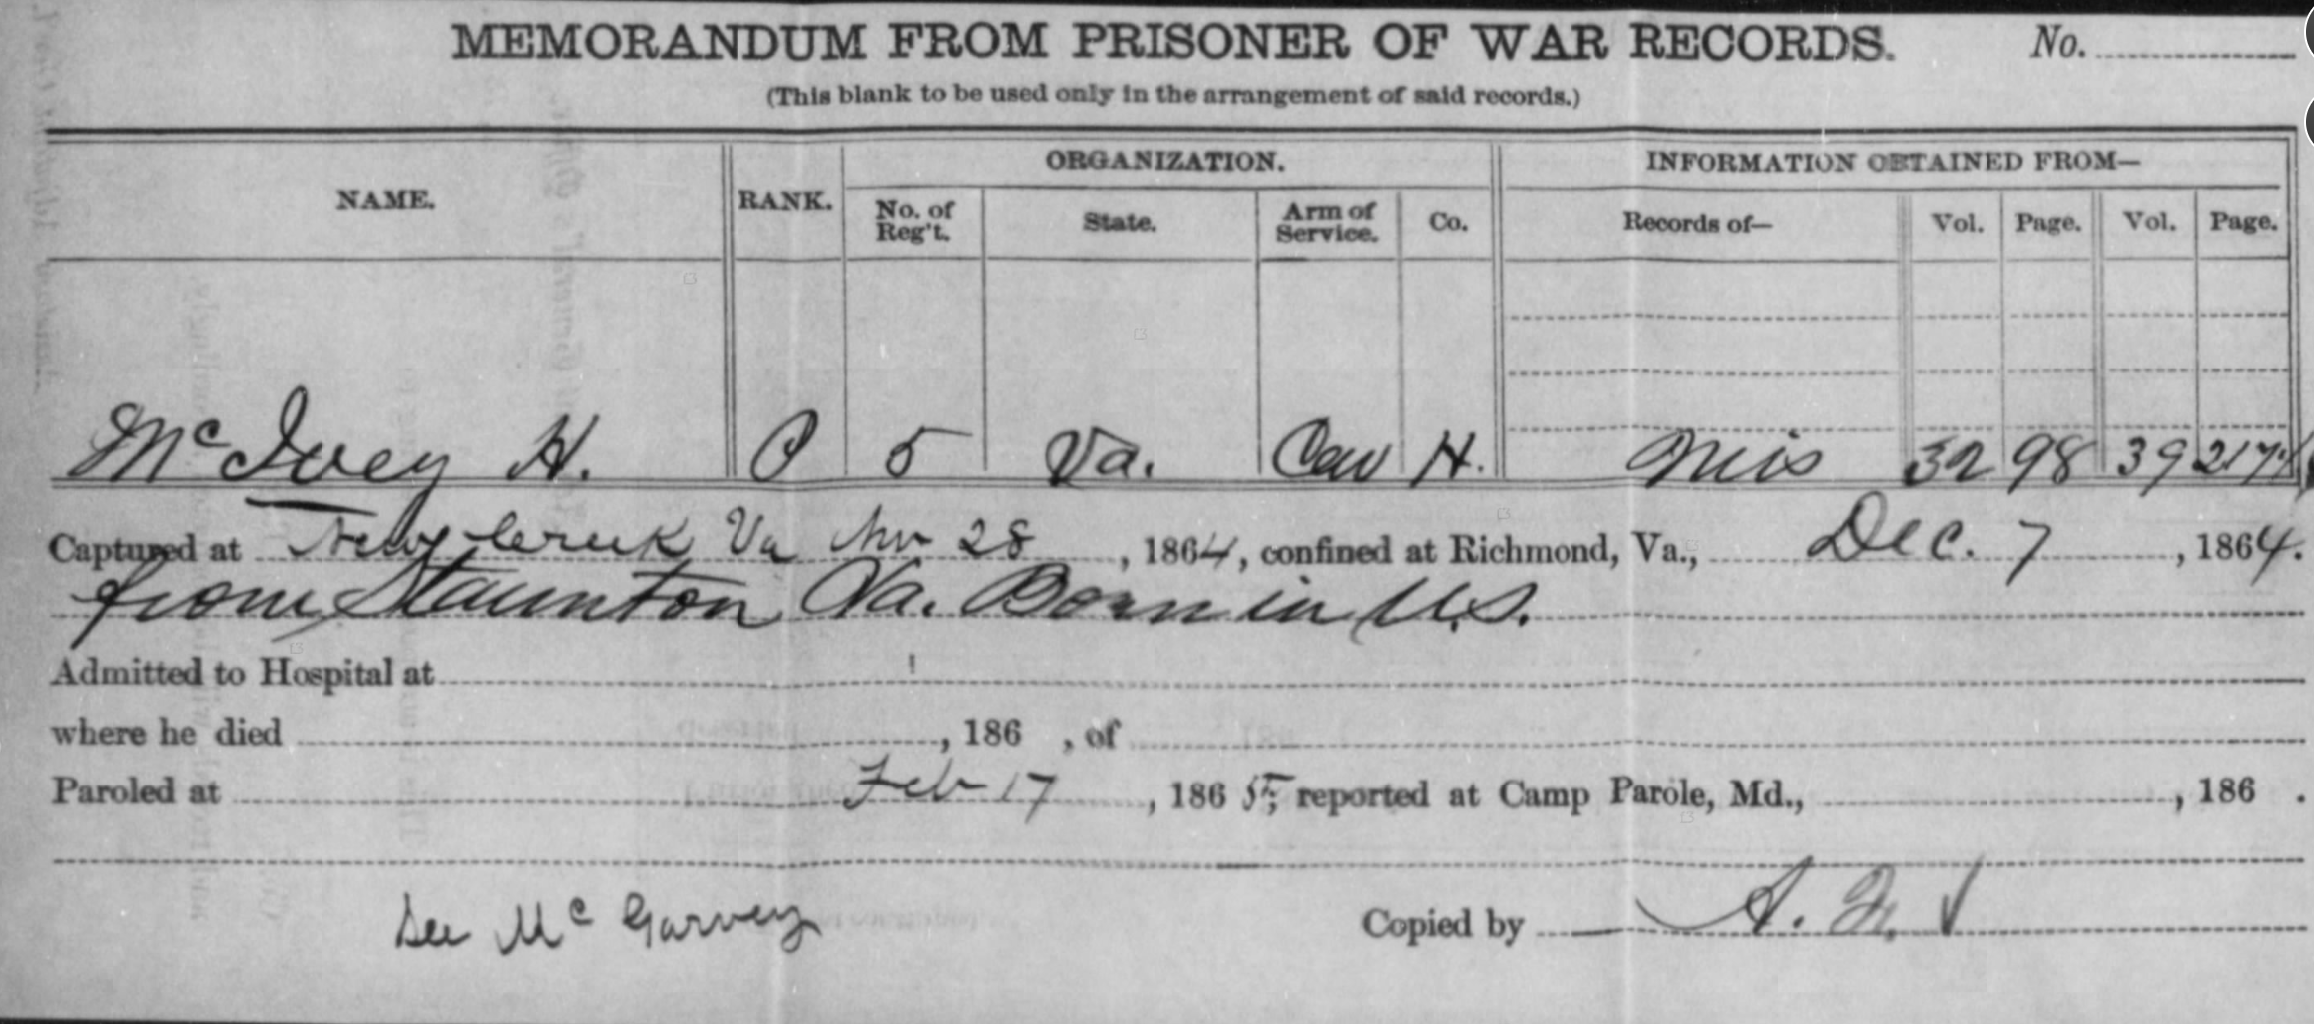 MEMORANDUM FROM PRISONER OF WAR RECORDS. No.
(This blank to be used only in the arrangement of said records.)
NAME. RANK. ORGANIZATION. INFORMATION OBTAINED FROM—
No. of Reg't. State. Arm of Service. Co. Records of— Vol. Page. Vol. Page.
McIvey H. P 5 Va. Cav H. Mis 32 98 39 217
Captured at New Creek Va Nov 28, 1864, confined at Richmond, Va., Dec. 7, 1864.
from Staunton Va. Born in U.S.
Admitted to Hospital at
where he died , 186 , of
Paroled at Feb 17, 1865, reported at Camp Parole, Md., , 186 .
See McGarvey Copied by A.